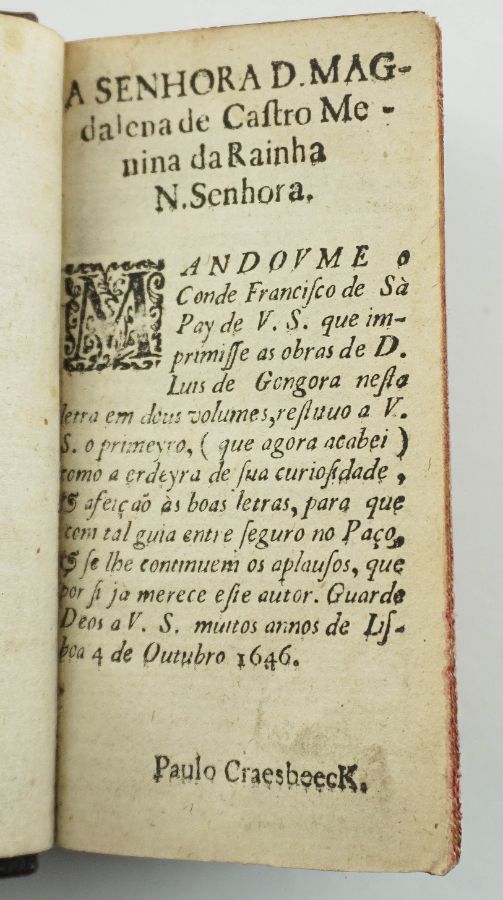 A SENHORA D. MAG-
dalena de Caſtro Me-
nina da Rainha
N. Senhora.
MANDOVME o
Conde Franciſco de Sà
Pay de V. S. que im-
primiſſe as obras de D.
Luis de Gongora neſta
letra em dous volumes, reſtituo a V.
S. o primeyro, ( que agora acabei )
como a erdeyra de ſua curioſidade,
& afeiçaõ às boas letras, para que
com tal guia entre ſeguro no Paço,
& ſe lhe continuem os aplauſos, que
por ſi ja merece eſte autor. Guarde
Deos a V. S. muitos annos de Liſ-
boa 4 de Outubro 1646.
Paulo CraesbeecK.